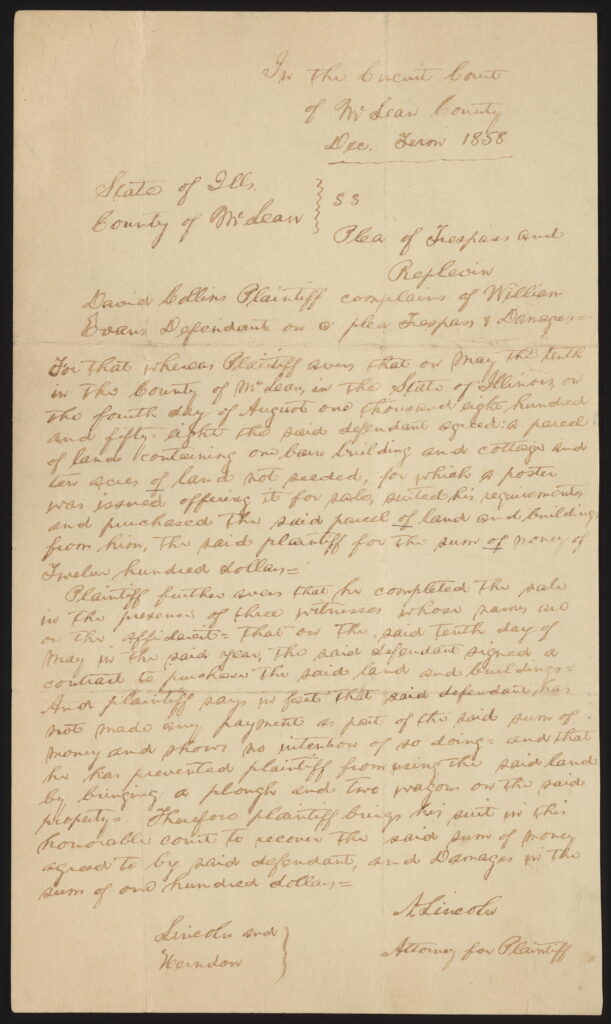 In the Circuit Court
of McLean County
Dec. Term 1858
State of Ills.
County of McLean } S S
Plea of Trespass and
Replevin
David Collins Plaintiff complains of William
Evans Defendant on a plea Trespass & Damages=
For that whereas Plaintiff avers that on May the tenth
in the County of McLean, in the State of Illinois, on
the fourth day of August one thousand eight hundred
and fifty-eight the said defendant agreed: a parcel
of land containing one barn building and cottage and
ten acres of land not seeded, for which a poster
was issued offering it for sale, suited his requirements
and purchased the said parcel of land and buildings
from him, the said plaintiff for the sum of money of
Twelve hundred dollars=
Plaintiff further avers that he completed the sale
in the presence of three witnesses whose names are
on the affidavit= that on the said tenth day of
May in the said year, the said defendant signed a
contract to purchase the said land and buildings=
And plaintiff says in fact that said defendant has
not made any payment as part of the said sum of
money and shows no intention of so doing= and that
he has prevented plaintiff from using the said land
by bringing a plough and two wagons on the said
property= Therefore plaintiff brings his suit in this
honorable court to recover the said sum of money
agreed to by said defendant, and Damages in the
sum of one hundred dollars=
A. Lincoln
Lincoln and
Herndon }
Attorney for Plaintiff